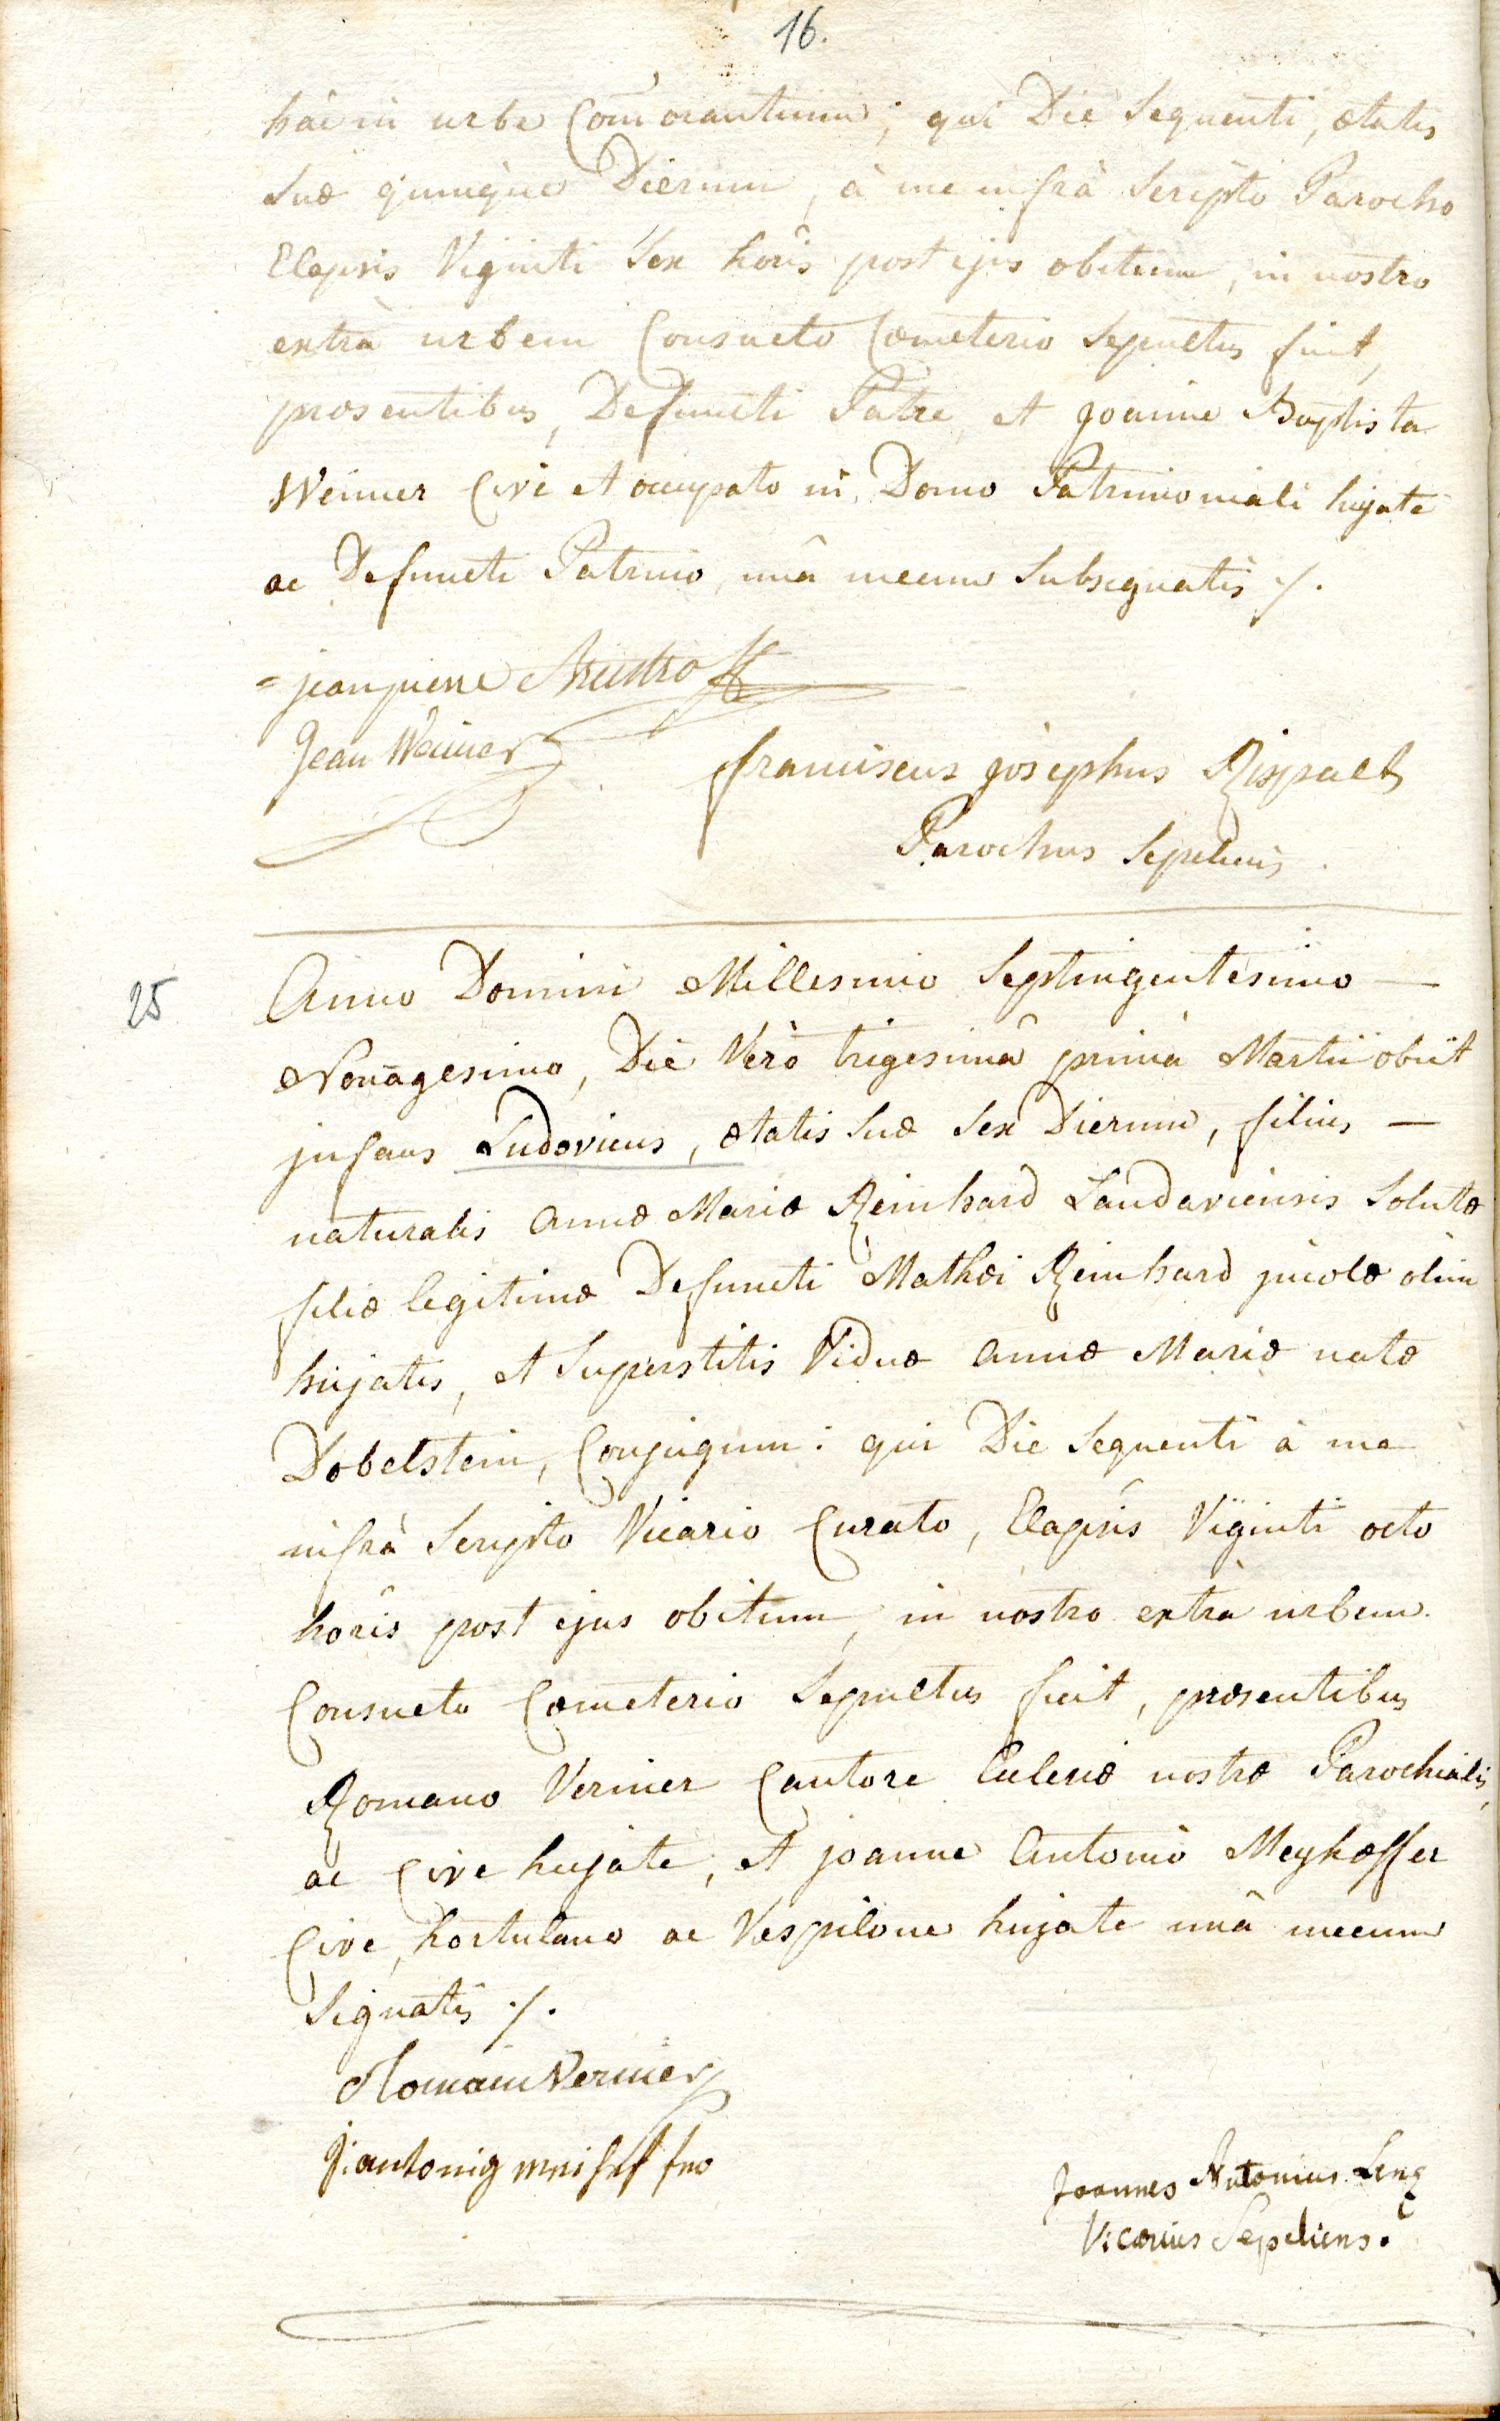 16.
hâc in urbe Com̄orantium; qui Die Sequenti, ætatis
Suæ quinque Dierum, à me infrà Scripto Parocho
Elapsis Viginti Sex horis post ejus obitum, in nostro
extrà urbem Consueto Cœmeterio Sepultus fuit,
præsentibus, Defuncti Patre et Joanne Baptista
Weimer Cive et occupato in Domo Patrimoniali hujate
ac Defuncti Patrino, unâ mecum Subsignatis ./.
= jean pierre
Jean Weimer
franciscus josephus Rispalt
Parochus Sepeliens.
25
Anno Domini Millesimo Septingentesimo —
Nonagesimo, Die Verò trigesimâ primâ Martii obiit
jnfans Ludovicus, ætatis Suæ Sex Dierum, filius —
naturalis Annæ Mariæ Reinhard Landaviensis Solutæ
filiæ legitimæ Defuncti Mathæi Reinhard jncolæ olim
hujatis, et Superstitis Viduæ Annæ Mariæ natæ
Dobelstein, Conjugum: qui Die Sequenti à me
infrà Scripto Vicario Curato, Elapsis Viginti octo
horis post ejus obitum, in nostro extrà urbem
Consueto Cœmeterio Sepultus fuit, præsentibus
Romano Vernier Cantore Ecclesiæ nostræ Parochialis,
ac Cive hujate, et joanne Antonio Meyhœffer
Cive, hortulano ac Vespilone hujate unâ mecum
Signatis ./.
Romain Vernier
Joannes Antonius Lenz
Vicarius Sepeliens.